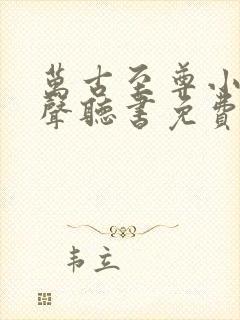 萬古至尊小
聲聽書免費
韦立